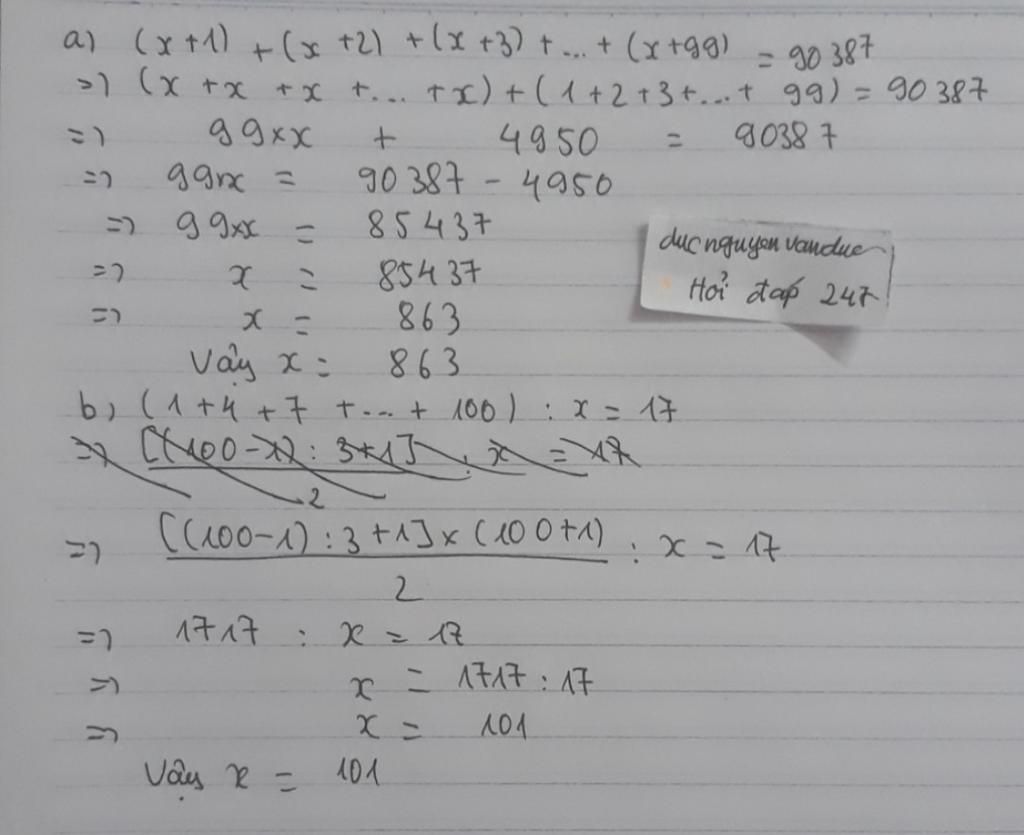 a) (x+1) + (x+2) + (x+3) + ... + (x+99) = 90387
=) (x + x + x + ... + x) + (1 + 2 + 3 + ... + 99) = 90387
=) 99xx + 4950 = 90387
=) 99xx = 90387 - 4950
=) 99xx = 85437
=) x = 85437
=) x = 863
Vậy x = 863
ducnguyenvanduc
Hỏi đáp 247
b) (1 + 4 + 7 + ... + 100) : x = 17
=) [(100-1) : 3+1] : x = 17
2
=) [(100-1) : 3+1] x (100+1) : x = 17
2
=) 1717 : x = 17
=) x = 1717 : 17
=) x = 101
Vậy x = 101